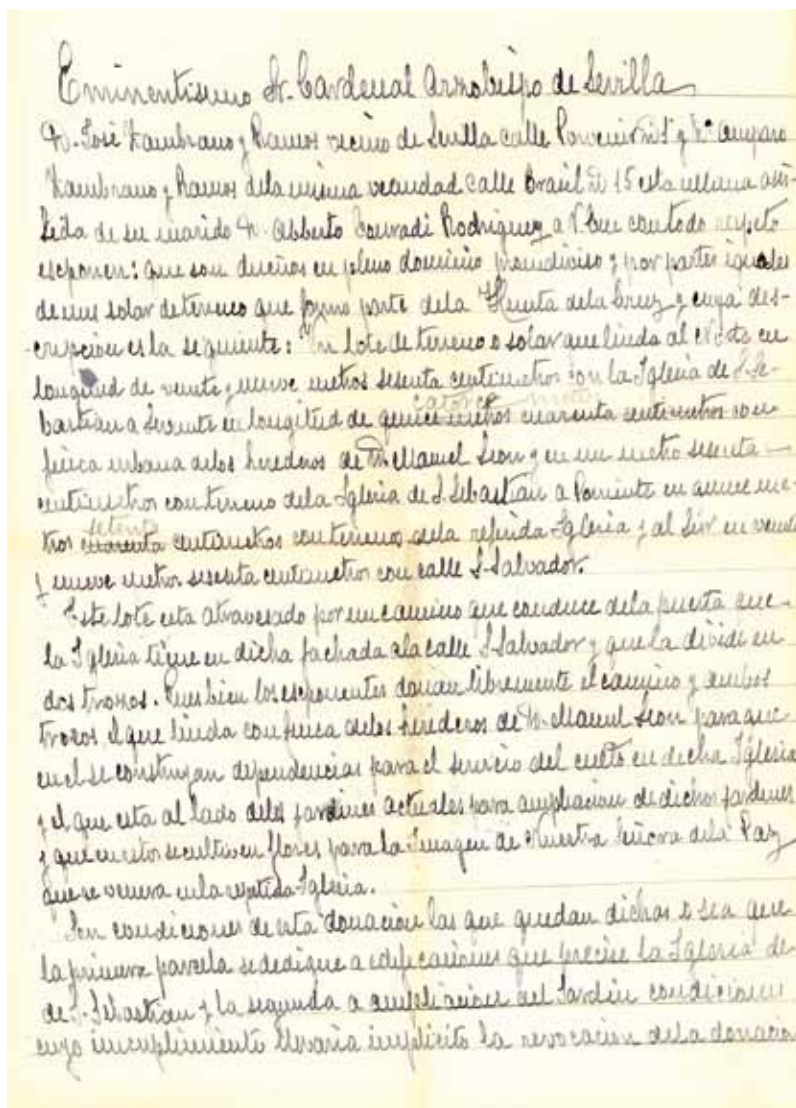 Eminentisimo Sr. Cardenal Arzobispo de Sevilla
D. José Zambrano y Ramos vecino de Sevilla calle Porvenir nº 1 y Dª Amparo
Zambrano y Ramos dela misma vecindad calle Brasil nº 15 esta ultima asis-
tida de su marido D. Alberto Conradi Rodriguez a V. Emc con todo respeto
esponen: que son dueños en pleno dominio proindiviso y por partes iguales
de un solar de terreno que formo parte dela Huerta dela Cruz y cuya des-
cripcion es la siguiente: Un lote de terreno o solar que linda al Norte en
longitud de veinte y nueve metros sesenta centimetros con la Iglesia de S. Se-
bastian a Levante en longitud de quince metros cuarenta centimetros con
catorce metros
finca urbana delos herederos de D. Manuel Leon y en un metro sesenta
centimetros con terreno dela Iglesia de S. Sebastian a Poniente en quince me-
setenta
tros cuarenta centimetros con terrenos dela referida Iglesia y al Sur en veinte
y nueve metros sesenta centimetros con calle S. Salvador.
Este lote esta atravesado por un camino que conduce dela puerta que
la Iglesia tiene en dicha fachada ala calle S. Salvador y que la divide en
dos trozos. Pues bien los esponentes donan libremente el camino y ambos
trozos el que linda con finca delos herederos de D. Manuel Leon para que
en el se construyan dependencias para el servicio del culto en dicha Iglesia
y el que esta al lado delos jardines actuales para ampliacion de dichos jardines
y que en estos se cultiven flores para la Imagen de Nuestra Señora dela Paz
que se venera en la repetida Iglesia.
Son condiciones de esta donacion las que quedan dichas o sea que
la primera parcela se dedique a edificaciones que precise la Iglesia de
de S. Sebastian y la segunda a ampliaciones del Jardin condiciones
cuyo incumplimiento llevaria implicito la revocacion dela donacion